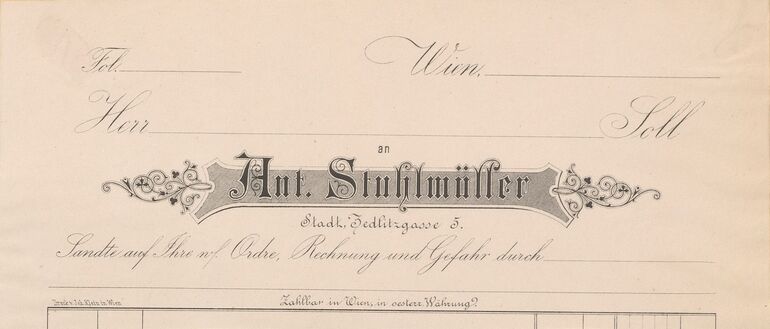 Fol.
Wien,
Herr Soll
an
Ant. Stuhlmüller
Stadt, Zedlitzgasse 5.
Sandte auf Ihre w/. Ordre, Rechnung und Gefahr durch
Druck v. Joh. Klein in Wien
Zahlbar in Wien, in oesterr. Währung.